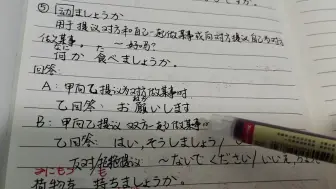 ⑤ 动ましょうか
用于提议对方和自己一起做某事或向对方提议自己为对方
做某事。 ～好吗?
なに た
何か 食べましょうか。
回答:
A:甲向乙提议为对方做某事时
乙回答: お願いします
B:甲向乙提议 双方一起做某事
乙回答: はい,そうしましょう/
反对/拒绝提议 ～ないでください/いいえ,
にもつ も
荷物を 持ちましょうか。